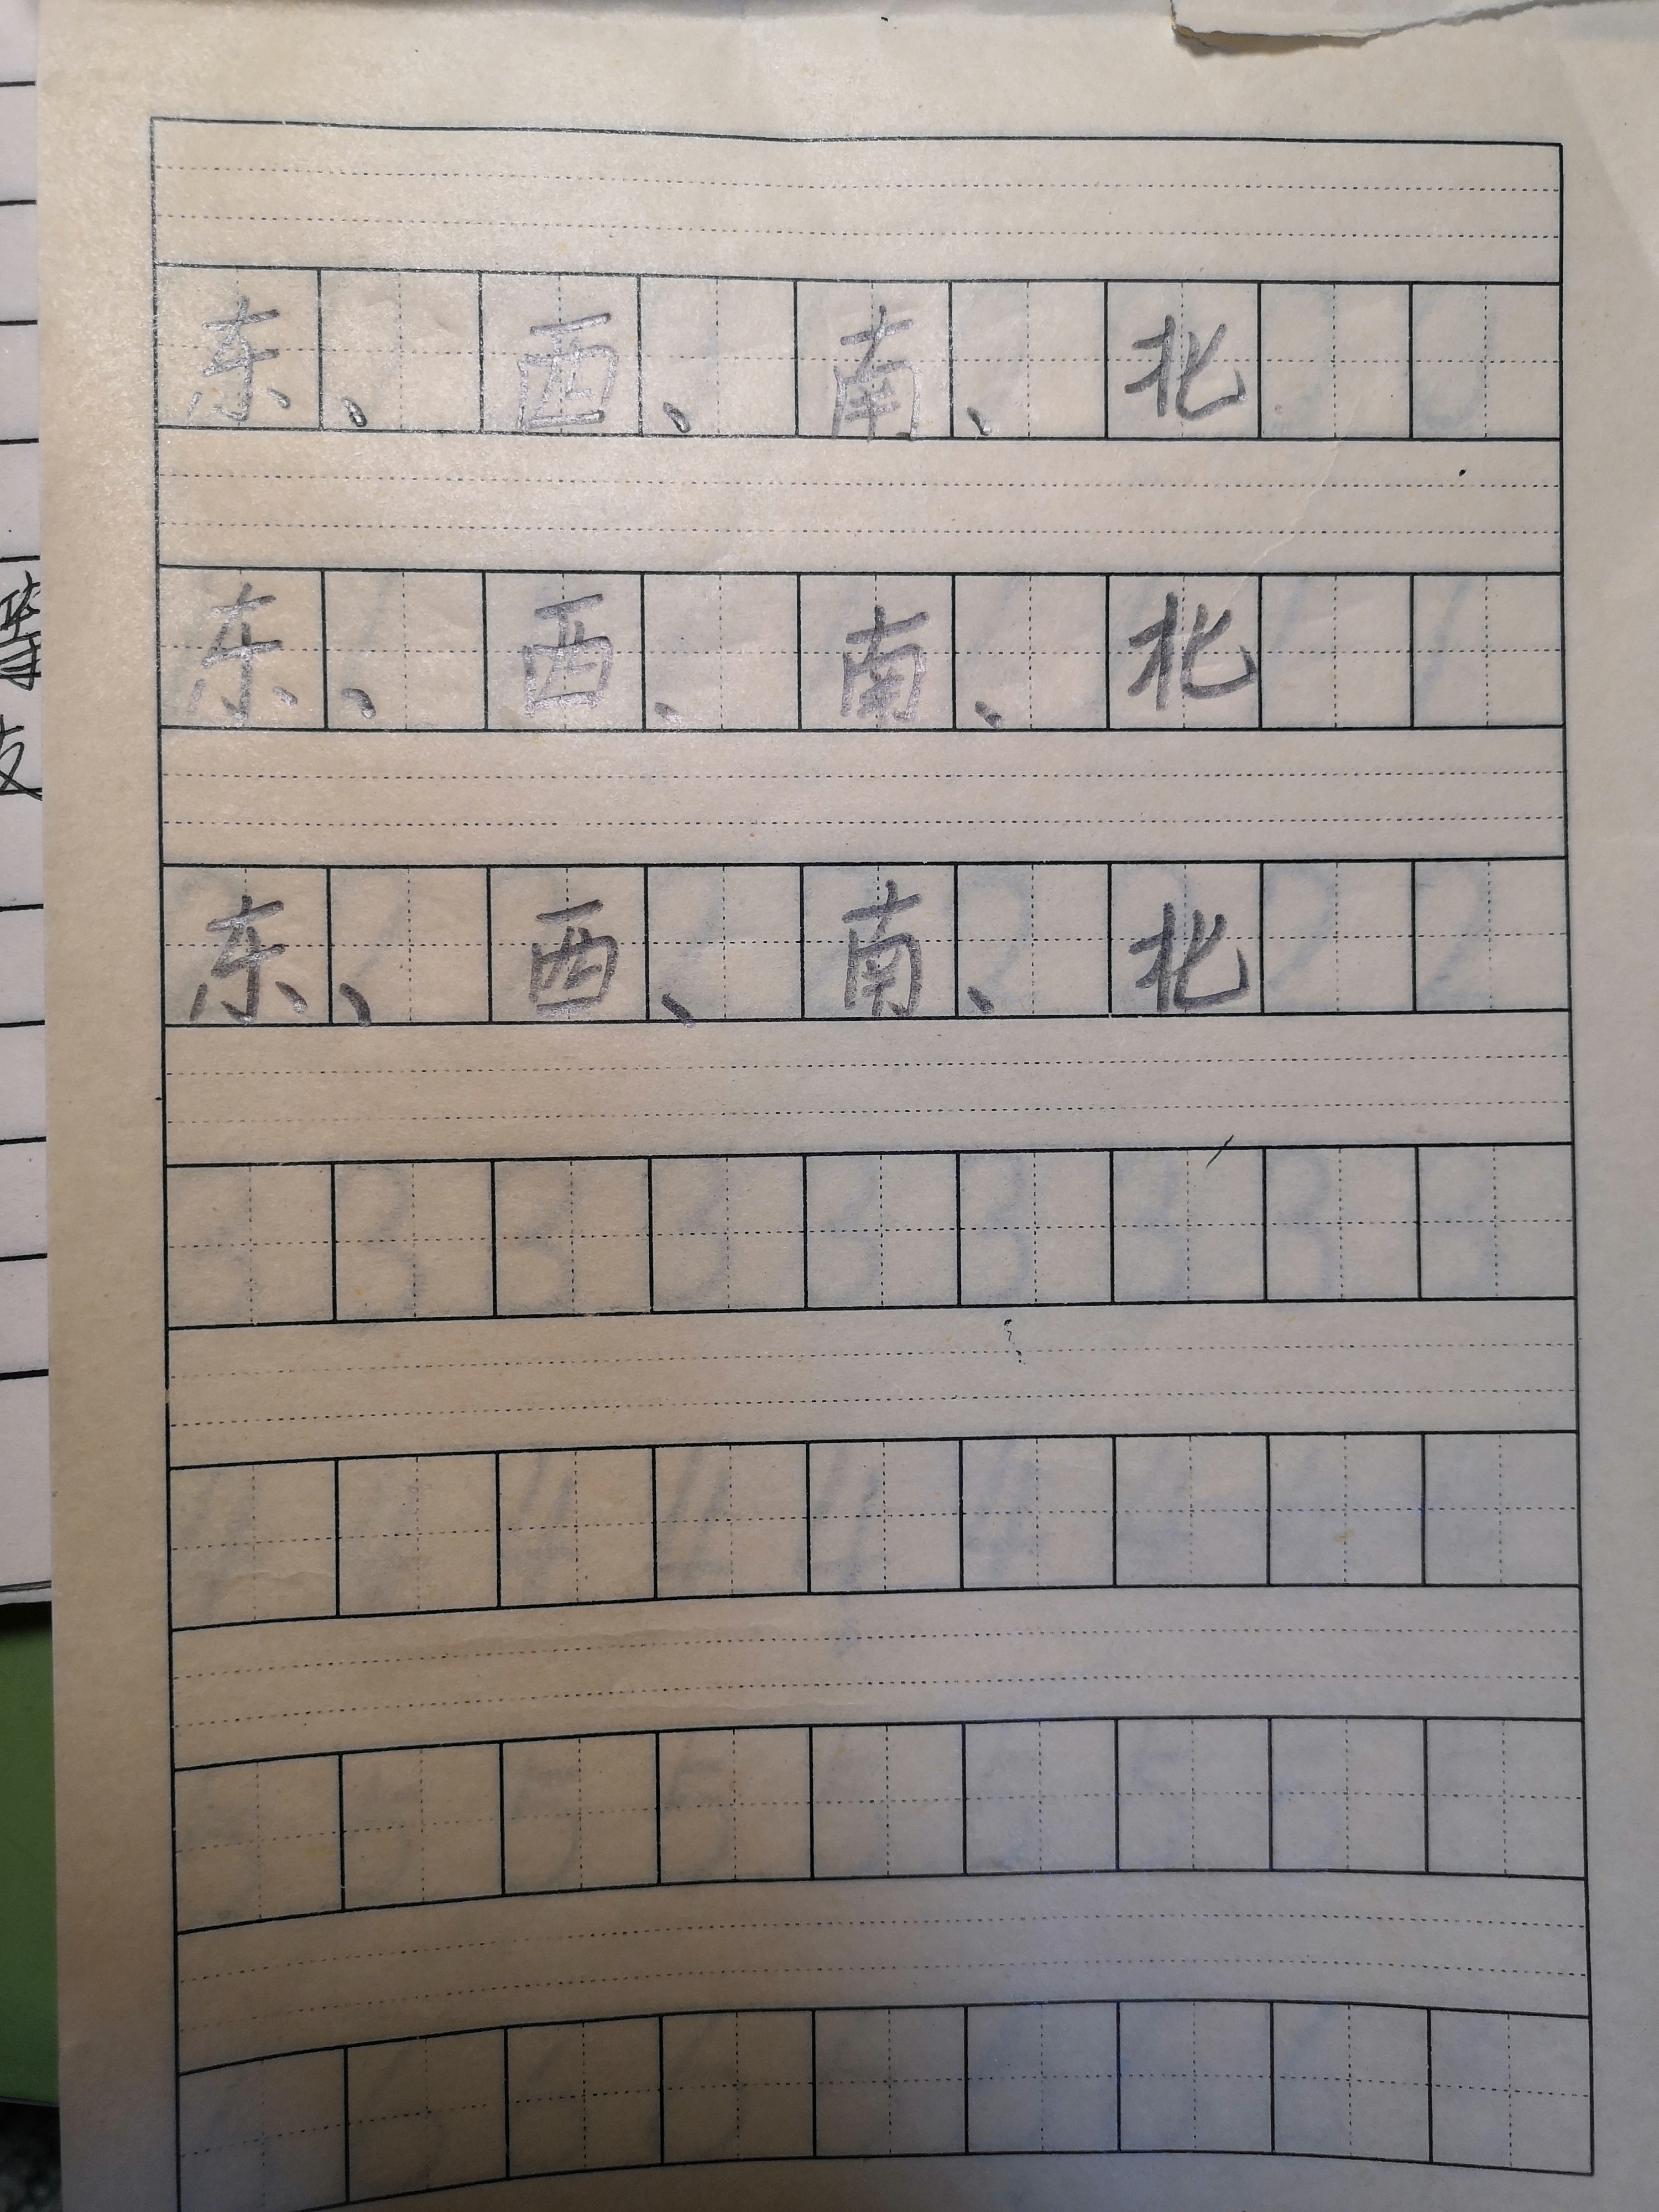 东、西、南、北
东、西、南、北
东、西、南、北